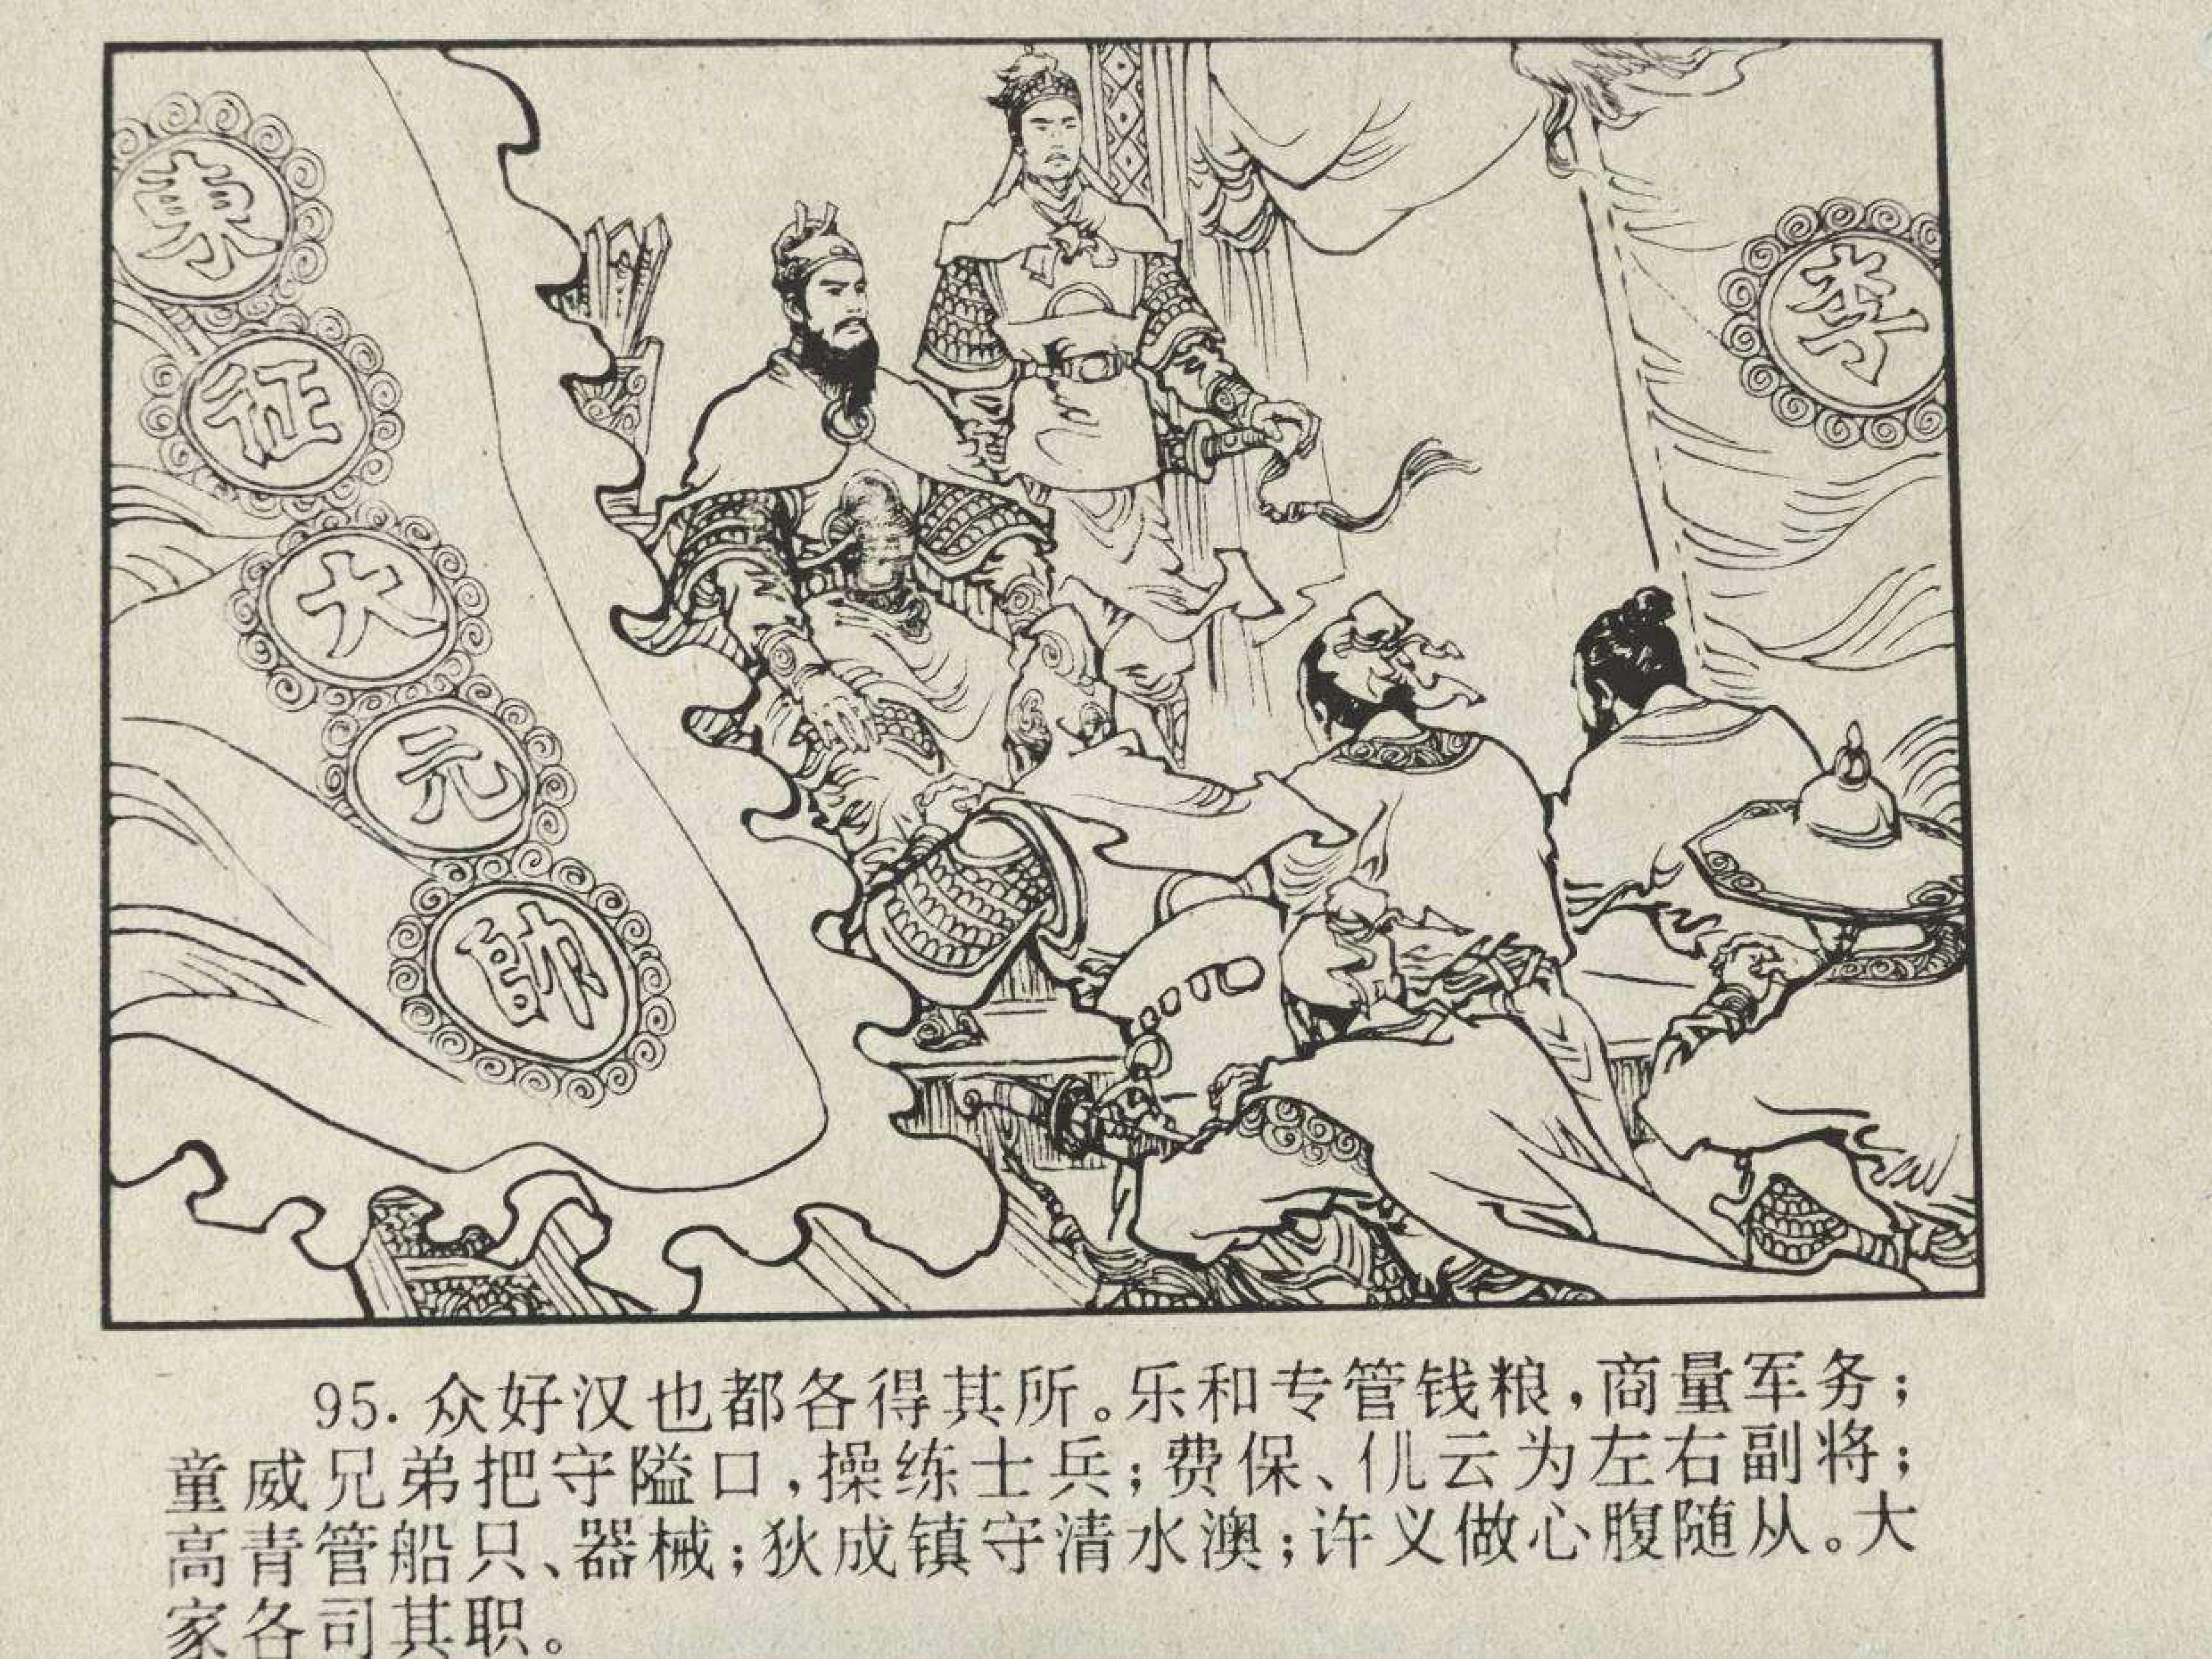 東
征
大
元
帥
李
95.众好汉也都各得其所。乐和专管钱粮,商量军务;
童威兄弟把守隘口,操练士兵;费保、仉云为左右副将;
高青管船只、器械;狄成镇守清水澳;许义做心腹随从。大
家各司其职。